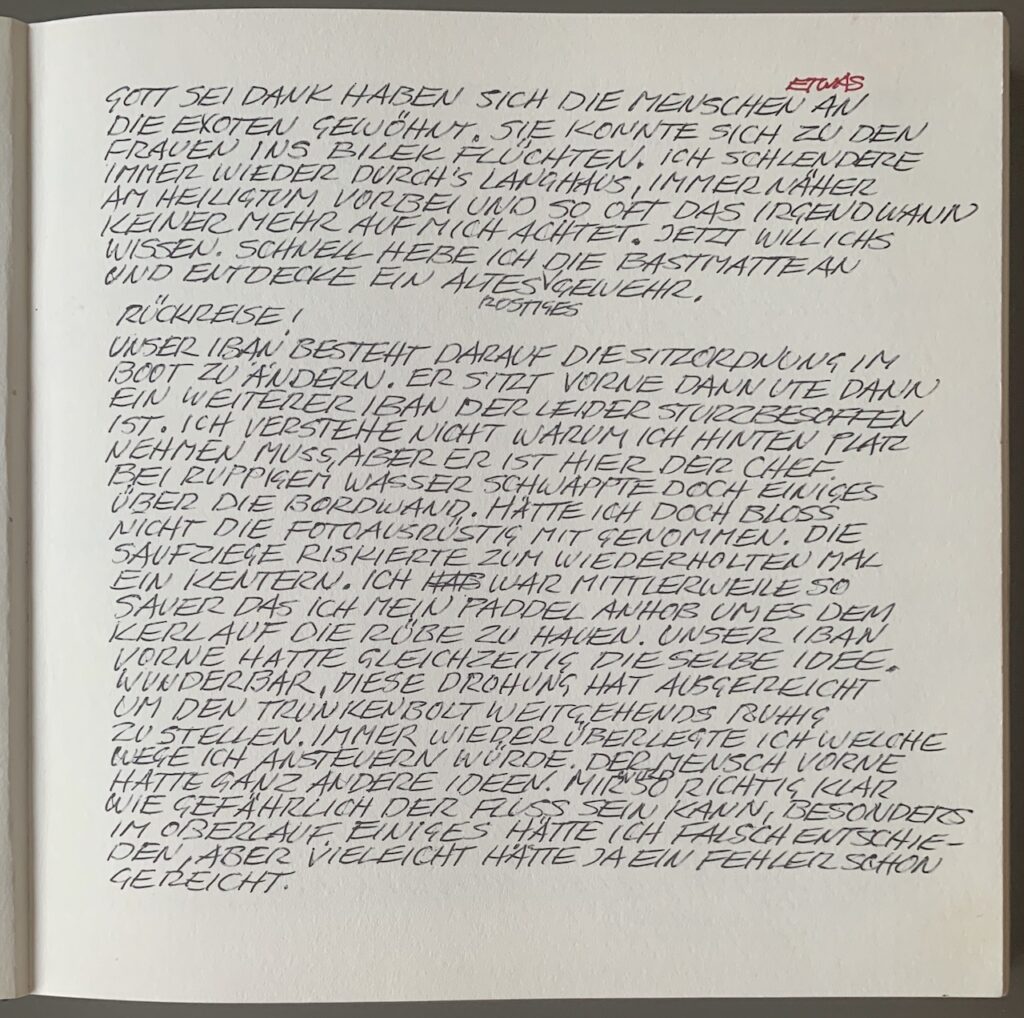 ETWAS
GOTT SEI DANK HABEN SICH DIE MENSCHEN AN
DIE EXOTEN GEWÖHNT. SIE KONNTE SICH ZU DEN
FRAUEN INS BILEK FLÜCHTEN. ICH SCHLENDERE
IMMER WIEDER DURCH'S LANGHAUS, IMMER NÄHER
AM HEILIGTUM VORBEI UND SO OFT DAS IRGENDWANN
KEINER MEHR AUF MICH ACHTET. JETZT WILL ICHS
WISSEN. SCHNELL HEBE ICH DIE BASTMATTE AN
UND ENTDECKE EIN ALTES GEWEHR.
ROSTIGES
RÜCKREISE!
UNSER IBAN BESTEHT DARAUF DIE SITZORDNUNG IM
BOOT ZU ÄNDERN. ER SITZT VORNE DANN UTE DANN
EIN WEITERER IBAN DER LEIDER STURZBESOFFEN
IST. ICH VERSTEHE NICHT WARUM ICH HINTEN PLATZ
NEHMEN MUSS, ABER ER IST HIER DER CHEF.
BEI RUPPIGEM WASSER SCHWAPPTE DOCH EINIGES
ÜBER DIE BORDWAND. HÄTTE ICH DOCH BLOSS
NICHT DIE FOTOAUSRÜSTIG MIT GENOMMEN. DIE
SAUFZIEGE RISKIERTE ZUM WIEDERHOLTEN MAL
EIN KENTERN. ICH HAB WAR MITTLERWEILE SO
SAUER DAS ICH MEIN PADDEL ANHOB UM ES DEM
KERL AUF DIE RÜBE ZU HAUEN. UNSER IBAN
VORNE HATTE GLEICHZEITIG DIE SELBE IDEE.
WUNDERBAR, DIESE DROHUNG HAT AUSGEREICHT
UM DEN TRUNKENBOLT WEITGEHENDS RUHIG
ZU STELLEN. IMMER WIEDER ÜBERLEGTE ICH WELCHE
WEGE ICH ANSTEUERN WÜRDE. DER MENSCH VORNE
HATTE GANZ ANDERE IDEEN. MIR WURD SO RICHTIG KLAR
WIE GEFÄHRLICH DER FLUSS SEIN KANN, BESONDERS
IM OBERLAUF. EINIGES HÄTTE ICH FALSCH ENTSCHIE-
DEN, ABER VIELEICHT HÄTTE JA EIN FEHLER SCHON
GEREICHT.